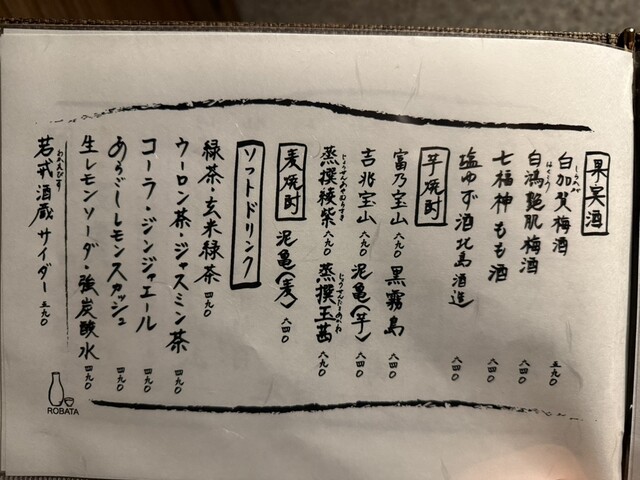 果実酒
白加賀梅酒 五九〇
白鴻艶肌梅酒 八四〇
七福神もも酒 八四〇
塩ゆず酒(北島酒造) 八四〇
芋焼酎
富乃宝山 八九〇 黒霧島 八四〇
吉兆宝山 八九〇 泥亀(芋) 八四〇
蒸撰綾紫 八九〇 蒸撰玉茜 八九〇
麦焼酎 泥亀(麦) 八四〇
ソフトドリンク
緑茶・玄米緑茶 四九〇
ウーロン茶・ジャスミン茶 四九〇
コーラ・ジンジャエール 四九〇
あらごしレモンスカッシュ 四九〇
生レモンソーダ・強炭酸水 四九〇
若戎酒蔵サイダー 五九〇
ROBATA